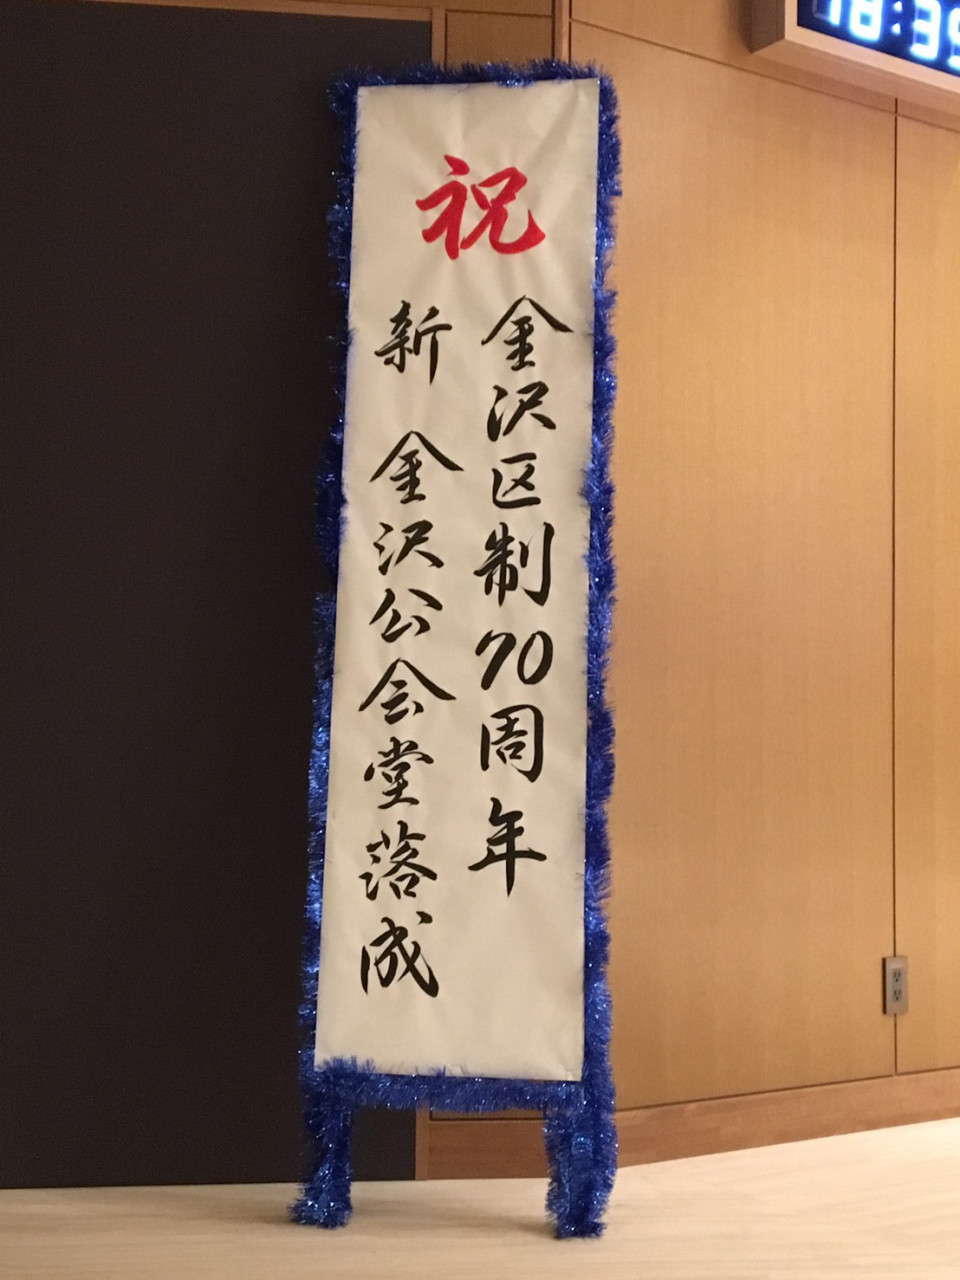 祝
金沢区制70周年
新 金沢公会堂落成
18:39